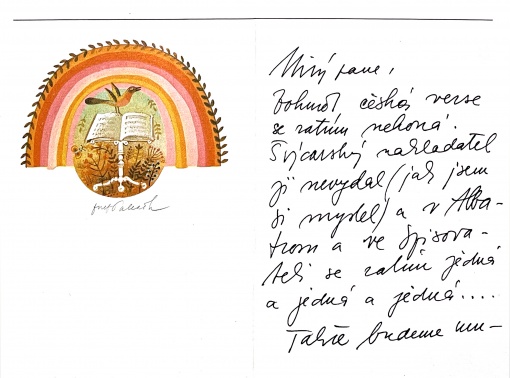 Josef Paleček
Milý pane,
bohužel česká verse
se zatím nekoná.
Švýcarský nakladatel
ji nevydal (jak jsem
si myslel) a v Alba-
trosu a ve Spisova-
teli se zatím jedná
a jedná a jedná....
Takže budeme mu-